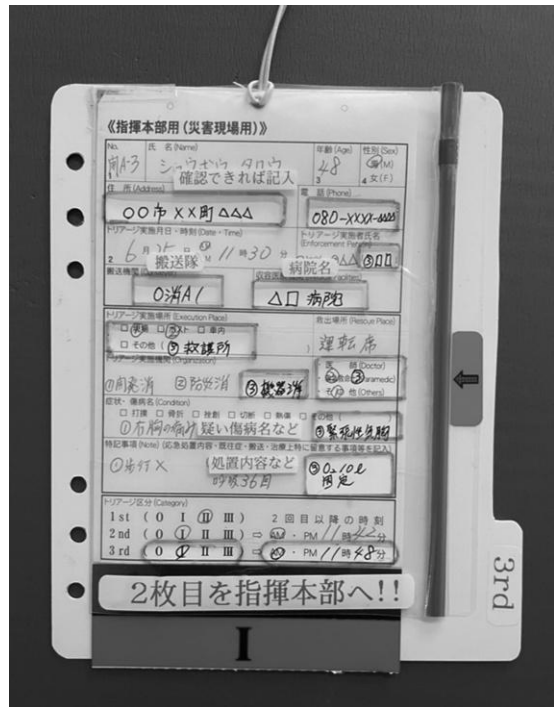 《指揮本部用(災害現場用)》
No. 氏 名(Name) 年齢(Age) 性別(Sex)
南A-3 ショウボウ タロウ 48 男(M)
1 確認できれば記入 3 4 女(F)
住 所(Address) 電 話(Phone)
○○市××町△△△ 080-XXXX-△△△△
トリアージ実施月日・時刻(Date・Time) トリアージ実施者氏名
2 6月25日 AM 11時30分 (Enforcement
搬送隊 病院名 ③□□
搬送機関 収容医療機関
○消A1 △□病院
トリアージ実施場所(Execution Place) 救出場所(Rescue Place)
□ 現場 □ ポスト □ 車内 運転席
□ その他(③救護所 )
トリアージ実施機関(Organization) 医 師(Doctor)
③機器消 救急救命士(Paramedic)
その他(Others)
症状・傷病名(Condition)
□ 打撲 □ 骨折 □ 挫創 □ 切断 □ 熱傷 □ その他(
疑い傷病名など ③緊張性気胸
特記事項(Note)(応急処置内容・既往症・搬送・治療上特に留意する事項等を記入)
①歩行× 処置内容など ③O₂10ℓ
呼吸36回 固定
トリアージ区分(Category)
1st ( 0 I II III ) 2回目以降の時刻
2nd ( 0 I II III ) ⇨ AM・PM 11時42分
3rd ( 0 I II III ) ⇨ AM・PM 11時48分
2枚目を指揮本部へ!!
I
3rd